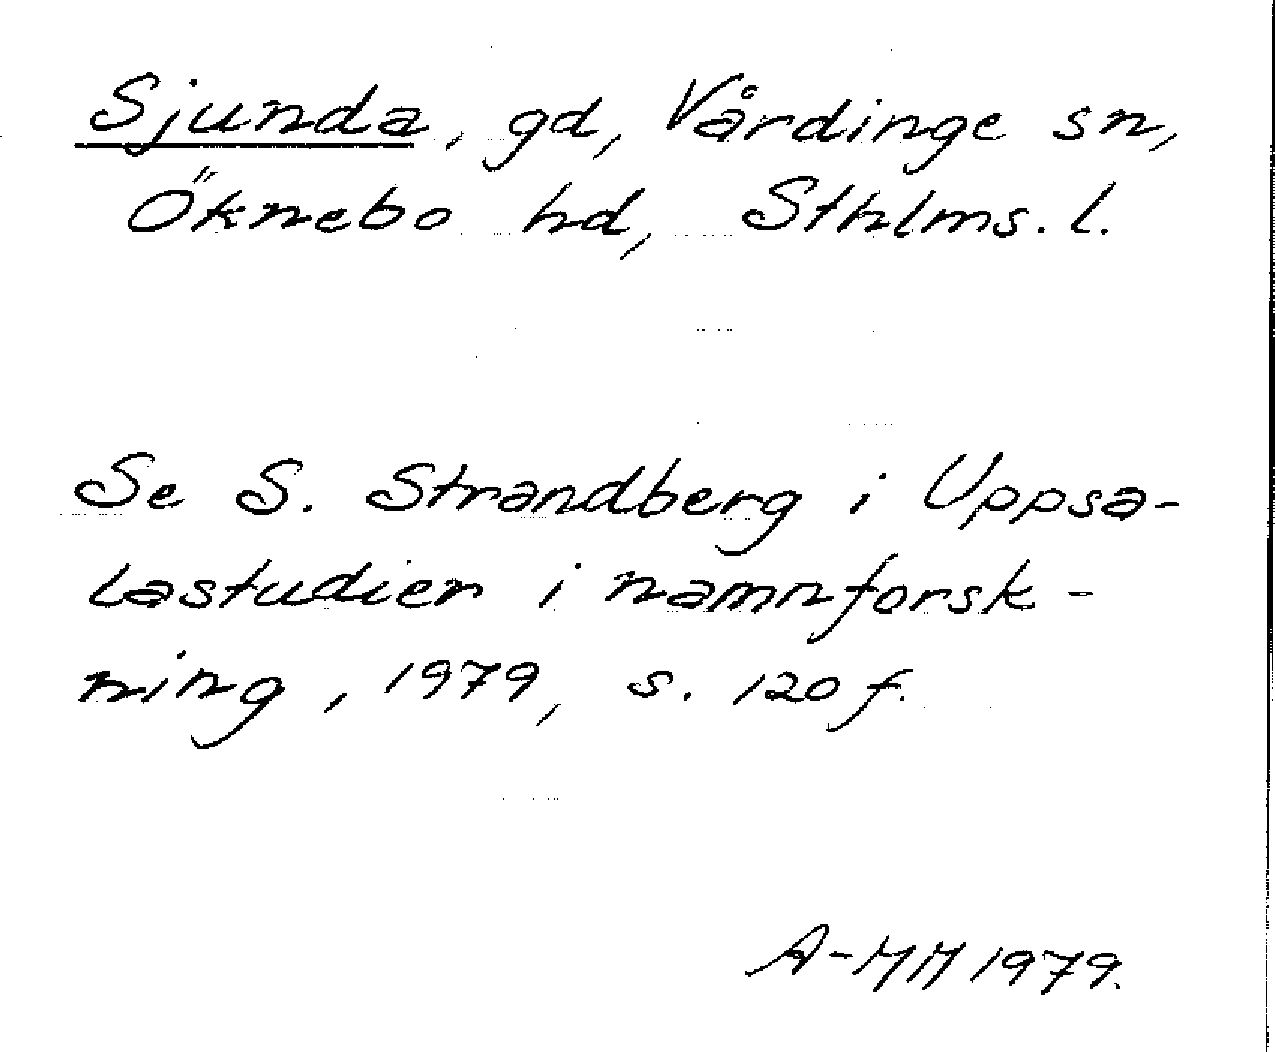 Sjunda, gd, Vårdinge sn,
Öknebo hd, Sthlms. l.
Se S. Strandberg i Uppsa-
lastudier i namnforsk-
ning, 1979, s. 120 f.
A-MM 1979.